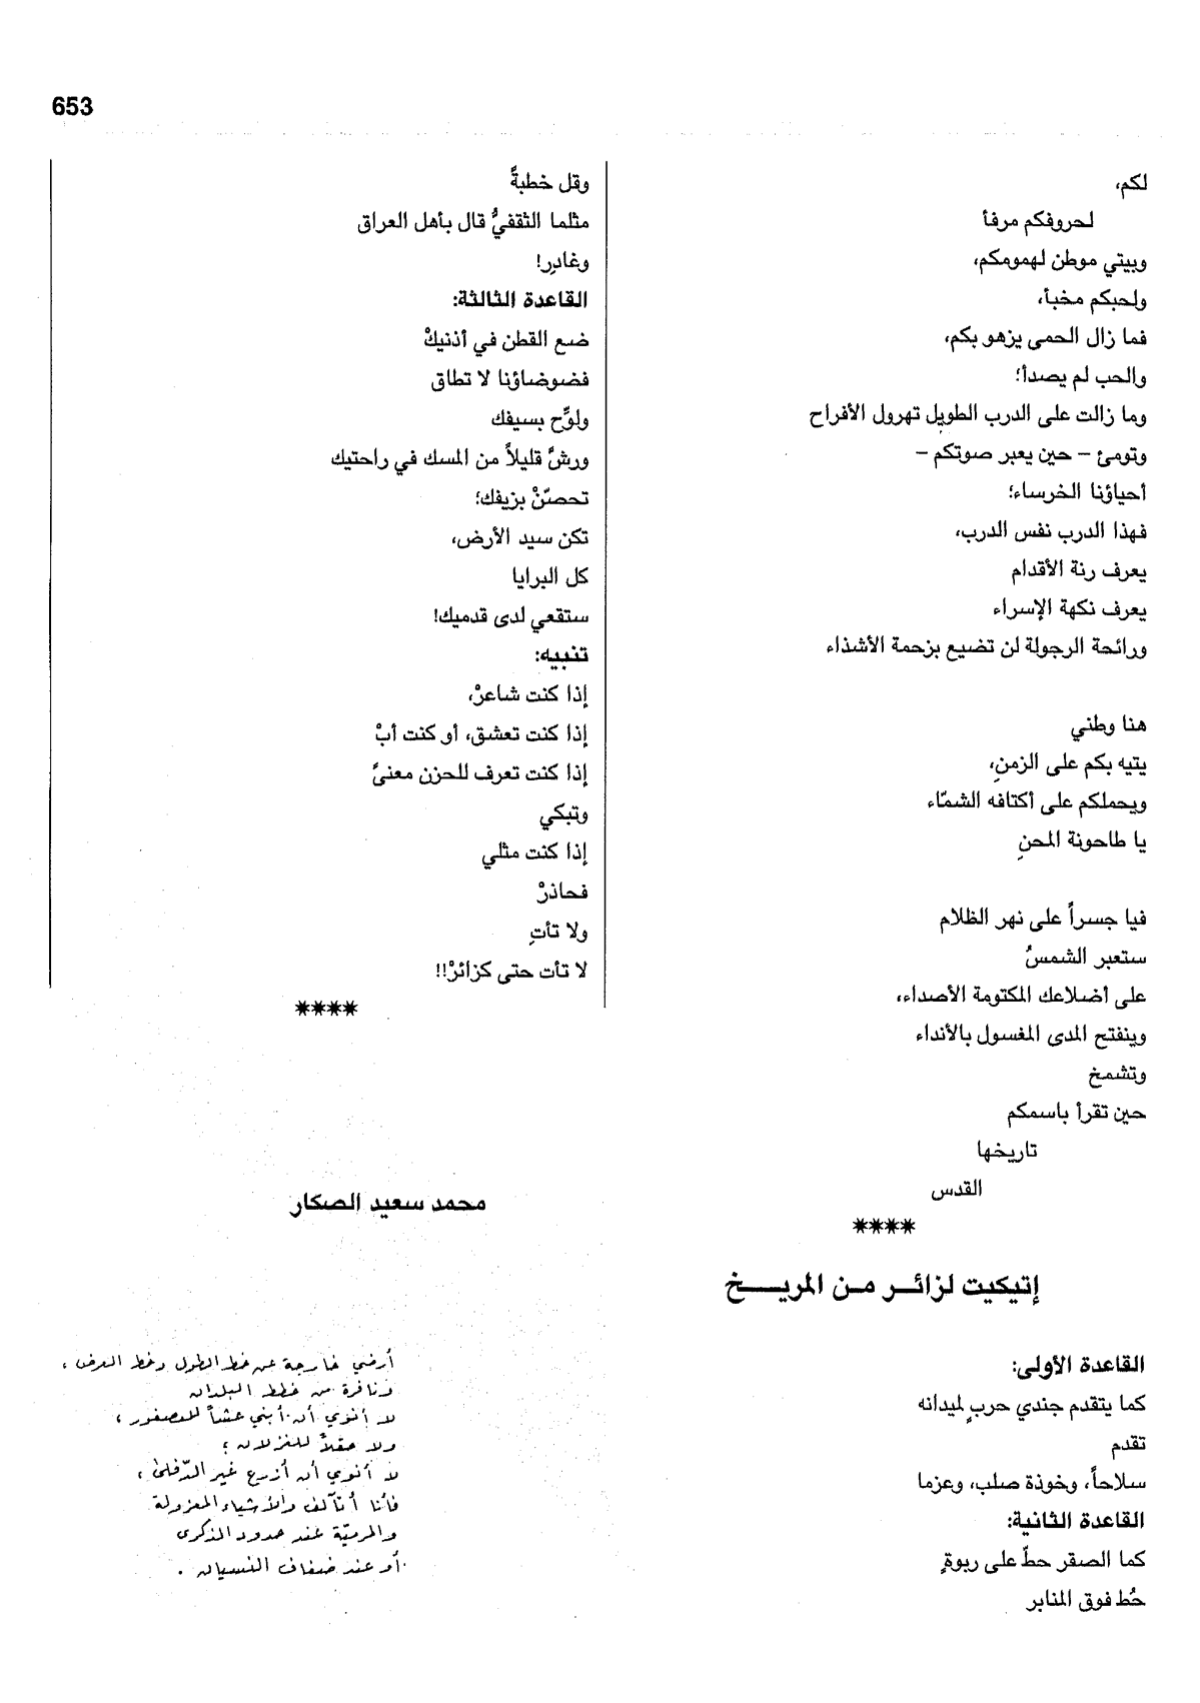 653
لكم،
لحروفكم مرفأ
وبيتي موطن لهمومكم،
ولحبكم مخبأ،
فما زال الحمى يزهو بكم،
والحب لم يصدأ؛
وما زالت على الدرب الطويل تهرول الأفراح
وتومئ – حين يعبر صوتكم –
أحياؤنا الخرساء؛
فهذا الدرب نفس الدرب،
يعرف رنة الأقدام
يعرف نكهة الإسراء
ورائحة الرجولة لن تضيع بزحمة الأشذاء
هنا وطني
يتيه بكم على الزمنِ،
ويحملكم على أكتافه الشمّاء
يا طاحونة المحنِ
فيا جسراً على نهر الظلام
ستعبر الشمسُ
على أضلاعك المكتومة الأصداء،
وينفتح المدى المغسول بالأنداء
وتشمخ
حين تقرأ باسمكم
تاريخها
القدس
****
إتيكيت لزائـر مـن المريـخ
القاعدة الأولى:
كما يتقدم جندي حربٍ لميدانه
تقدم
سلاحاً، وخوذة صلب، وعزما
القاعدة الثانية:
كما الصقر حطّ على ربوةٍ
حُط فوق المنابر
وقل خطبةً
مثلما الثقفيُّ قال بأهل العراق
وغادرِ!
القاعدة الثالثة:
ضع القطن في أذنيكْ
فضوضاؤنا لا تطاق
ولوِّح بسيفك
ورشَّ قليلاً من المسك في راحتيك
تحصّنْ بزيفك؛
تكن سيد الأرض،
كل البرايا
ستقعي لدى قدميك!
تنبيه:
إذا كنت شاعرْ،
إذا كنت تعشق، أو كنت أبْ
إذا كنت تعرف للحزن معنىً
وتبكي
إذا كنت مثلي
فحاذرْ
ولا تأتِ
لا تأت حتى كزائرْ!!
****
محمد سعيد الصكار
أرضي خارجة عن خط الطول وخط العرض،
ونافرة من خطط البلدان
لا أنوي أن أبني عشاً للعصفور،
ولا حقلاً للغزلان؛
لا أنوي أن أزرع غير الدّفلى،
فأنا أتآلف والأشياء المعزولة
والمرميّة عند حدود الذكرى
أو عند ضفاف النسيان.